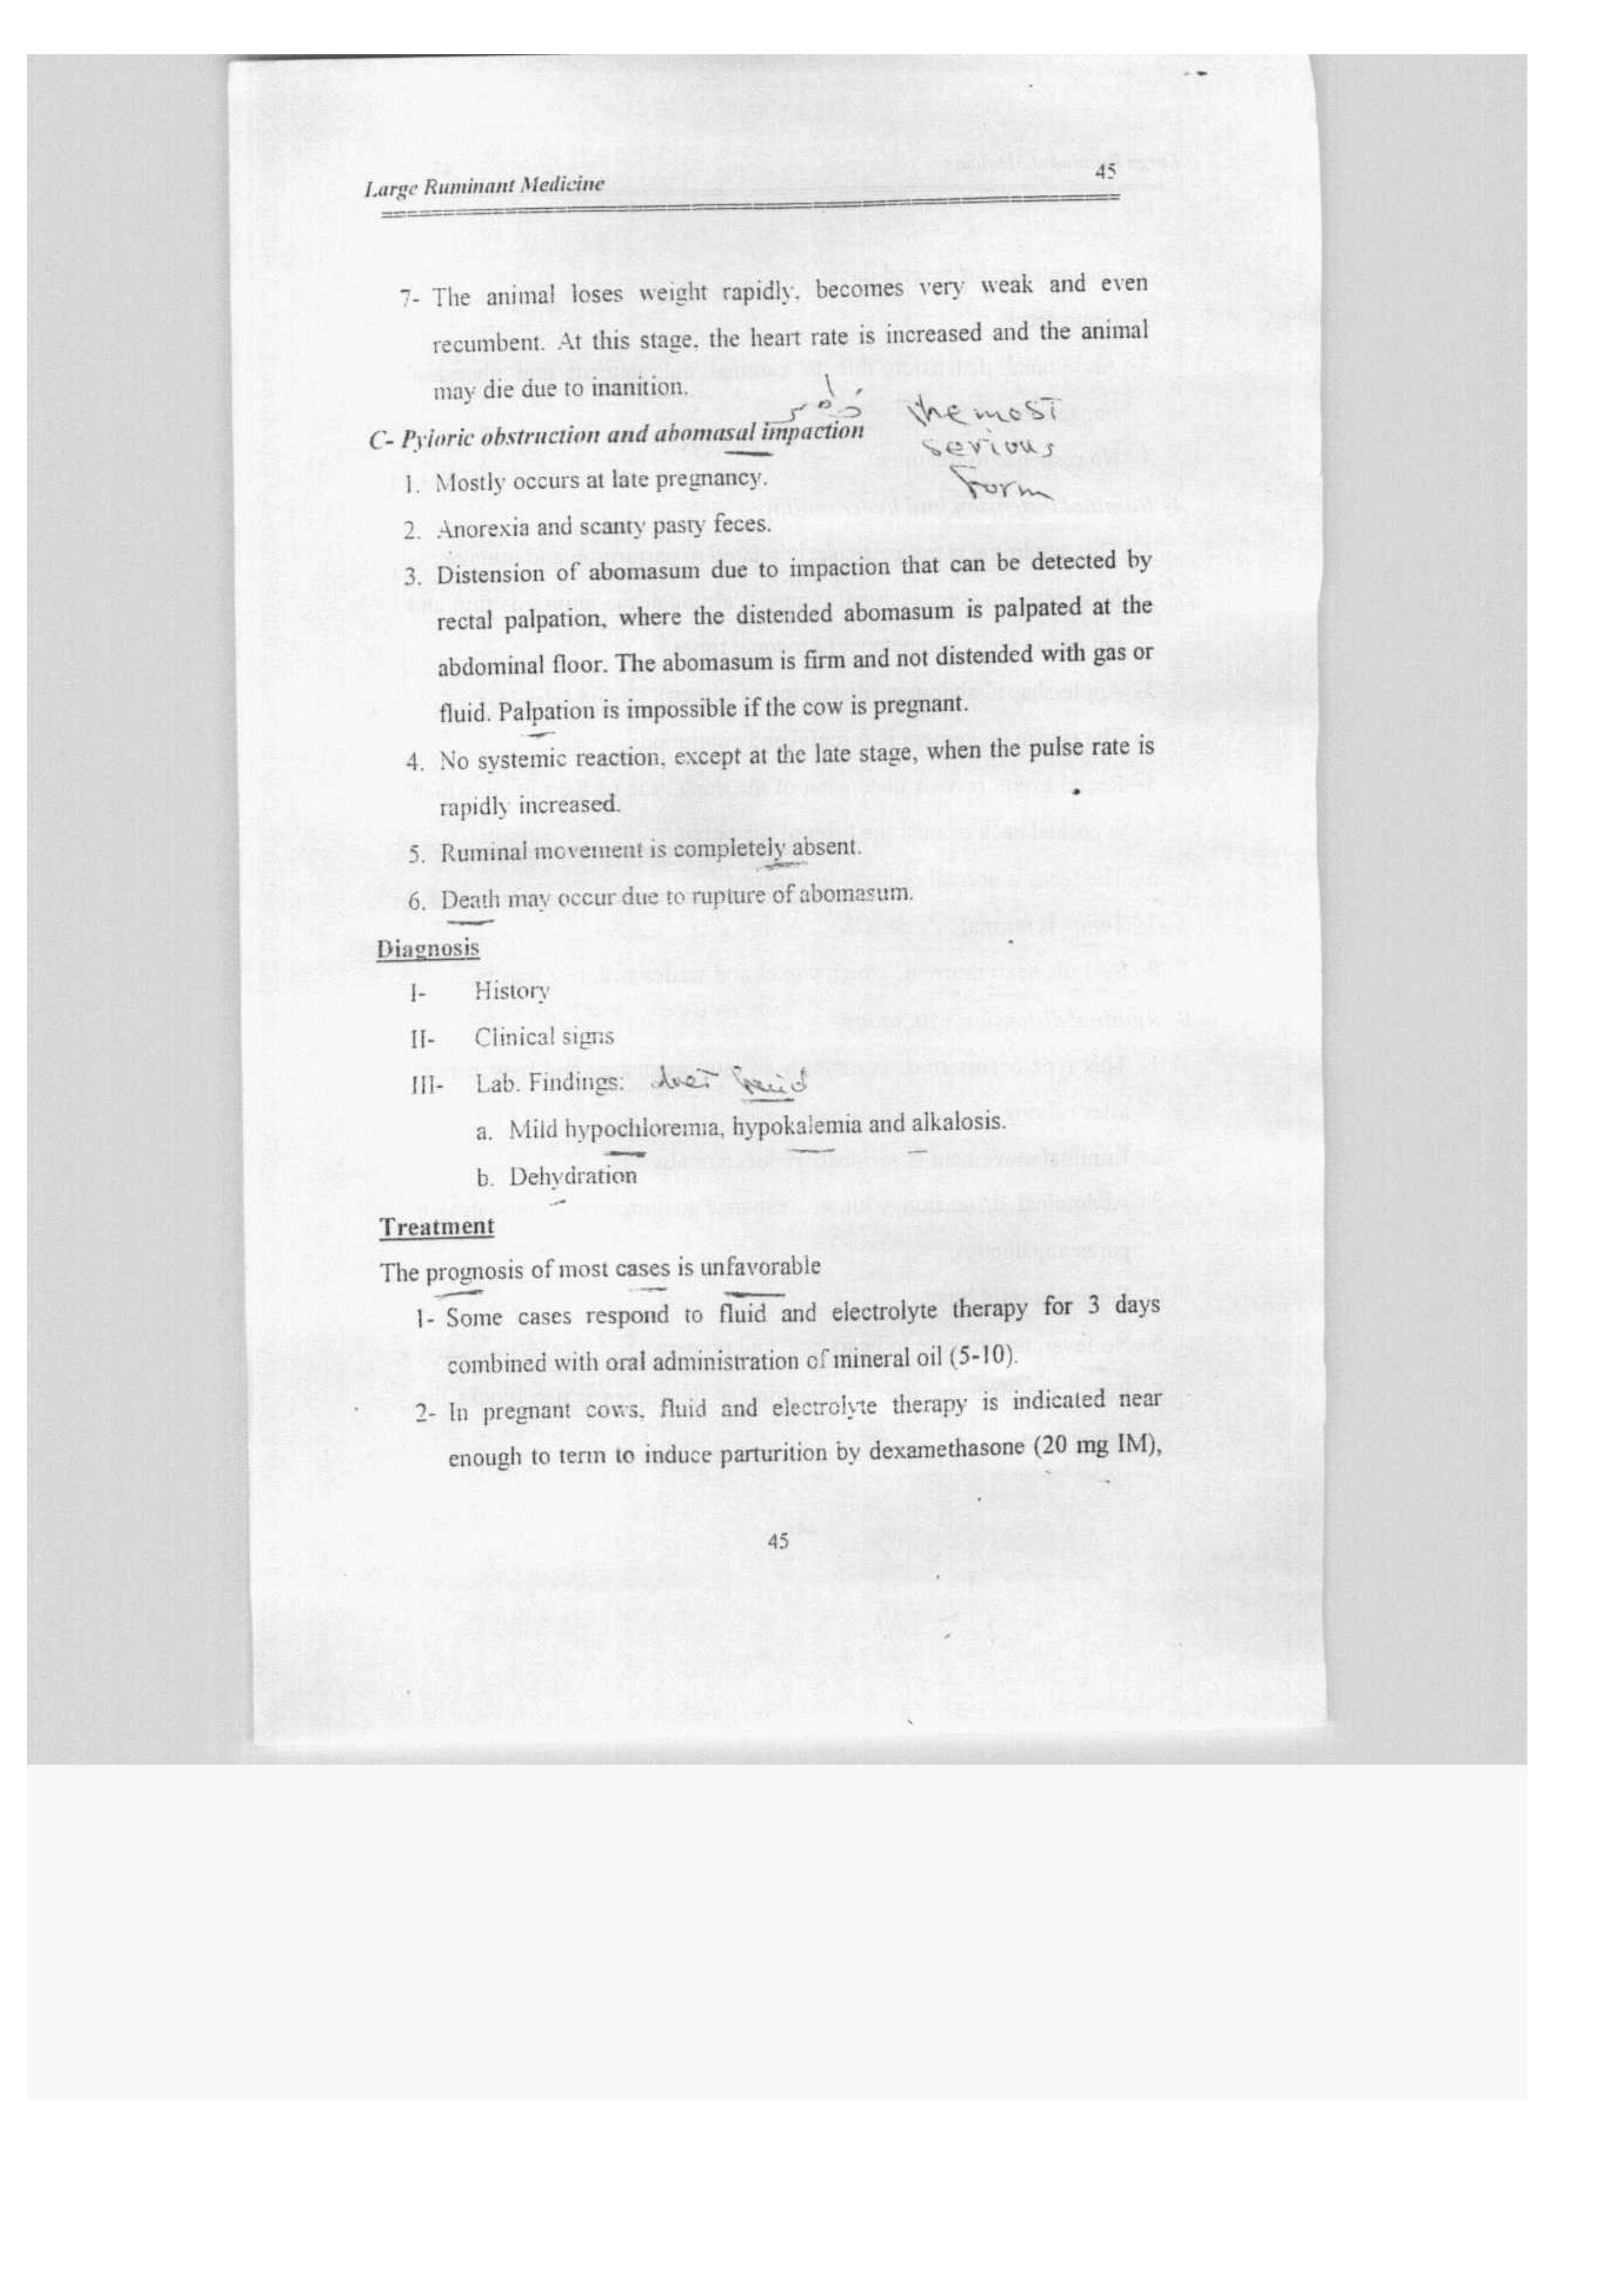 Large Ruminant Medicine 45
7- The animal loses weight rapidly, becomes very weak and even
recumbent. At this stage, the heart rate is increased and the animal
may die due to inanition.
the most
C- Pyloric obstruction and abomasal impaction
serious
1. Mostly occurs at late pregnancy.
form
2. Anorexia and scanty pasty feces.
3. Distension of abomasum due to impaction that can be detected by
rectal palpation, where the distended abomasum is palpated at the
abdominal floor. The abomasum is firm and not distended with gas or
fluid. Palpation is impossible if the cow is pregnant.
4. No systemic reaction, except at the late stage, when the pulse rate is
rapidly increased.
5. Ruminal movement is completely absent.
6. Death may occur due to rupture of abomasum.
Diagnosis
I- History
II- Clinical signs
III- Lab. Findings:
a. Mild hypochloremia, hypokalemia and alkalosis.
b. Dehydration
Treatment
The prognosis of most cases is unfavorable
1- Some cases respond to fluid and electrolyte therapy for 3 days
combined with oral administration of mineral oil (5-10).
2- In pregnant cows, fluid and electrolyte therapy is indicated near
enough to term to induce parturition by dexamethasone (20 mg IM),
45